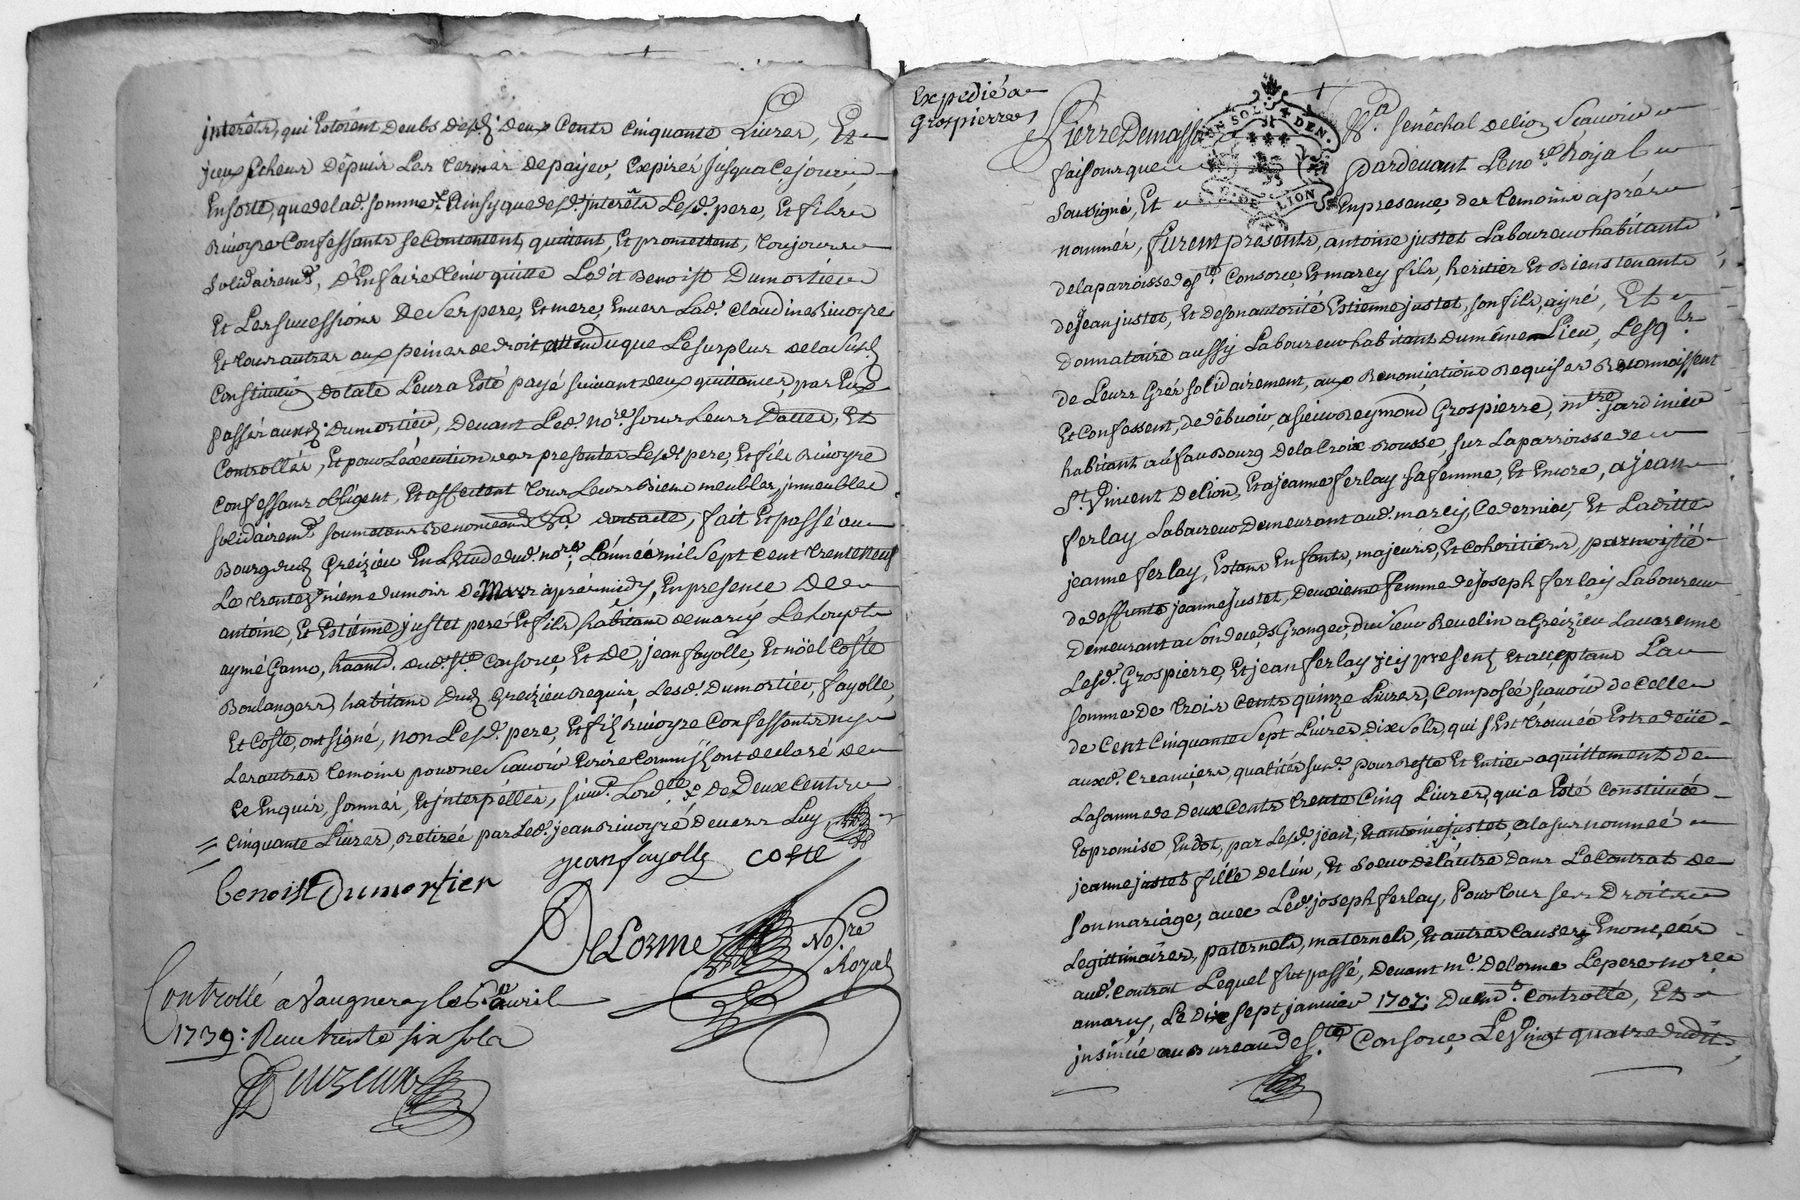 interêts, qui Estoient deubs desd. deux Cents cinquante Livres, Et
iceux Echeus dépuis Les termes de payer, Expirés jusqua Ce jour
Ensorte, que de lad. somme pl. Ainsy que desd. jnterêts Lesd. pere, Et fils
Rivoyre Confessants se Contentent, quittent, Et promettent, toujours
solidairemt, d'En faire tenir quitte Ledit Benoist Dumortier
Et Les successions De Ses pere, Et mere, Envers Lad. Claudine Rivoyre
Et tous autres aux peines de droit attendu que Le surplus de la susd.
Constitution dotale Leur a Esté payé suivant deux quittances, par Eux
passés aud. Dumortier, devant Led. nore sous Leurs Dattes, Et
Controllés, Et pour L'éxécution des presentes Lesd. pere, Et fils Rivoyre
Confessants obligent, Et affectent tous Leurs Biens meubles, jmmeubles
solidairemt soumetons Renonceant &a. dontacte, fait Et passé au
Bourg dud. Greizieu En L'Etude dud. nore, L'année mil sept cent trente neuf
Le trente nième du mois de Mars aprés midy, En presence de
antoine, Et Estienne justet pere Et fils habitans de marcy Le Loup
aymé Gamo, haand. dud. Ste Consorce, Et De jean fayolle, Et nöel Coste
Boulangers, habitans Dud. Greizieu Requis, Lesd. Dumortier, fayolle,
Et Coste, ont signé, non Lesd. pere, Et fils Rivoyre Confessants ny
Les autres temoins pour ne Scavoir Ecrire Comm'ils ont declaré de
ce Enquis, sommés, Et jnterpellés, suivt. Lordce de Deux Cents
cinquante Livres, Retirée par Led. jean Rivoyre Devers Luy
jean fayolle COSTE
benoist Dumortier
DeLorme No.re
Royal
Controllé a Vaugneray le 6e avril
1739: Reçu trente six sols
Expedié a
Grospierre
Pierre Demasso Sénéchal de lion Scavoir
faisons que pardevant Le nore Royal
GEN SOL 4 DEN.
G.DE LION
soussigné, Et En presence, des temoins aprés
nommés, furent presents, antoine justet Laboureur habitant
de la parroisse de Ste Consorce, Et marcy fils, heritier Et Bienstenant
de Jean justet, Et de son autorité Estienne justet, son fils, ayné, Et
donnataire aussy Laboureur habitant du même Lieu, Lesqls
de Leurs Grés solidairement, aux Renonciations Requises Reconnoissent
Et Confessent, de débvoir, a sieur Reymond Grospierre, mtre jardinier
habitant au fau Bourg de la Croix Rousse, sur La parroisse de
St. Vincent De lion, Et a jeanne ferlay sa femme, Et Encore, a jean
ferlay Laboureur Demeurant aud. marcy, Ce dernier, Et Laditte
jeanne ferlay, Estans Enfants, majeurs, Et Coheritiers, par moitié
de deffunte jeanne Justet, deuxieme femme de Joseph ferlay Laboureur
Demeurant a Son deceds Granger, du Sieur Revelin a Greizieu Lavarenne
Lesd. Grospierre, Et jean ferlay jcy present, Et acceptans La
somme de trois cents quinze Livres, Composée scavoir de Celle
de Cent Cinquante Sept Livres Dix Sols, qui s'Est trouvée Estre deüe
auxd. Creanciers, qualités susd. pour Reste Et Entier aquittement de
La somme de Deux Cents trente Cinq Livres, qui a Esté Constituée
Et promise, En dot, par Lesd. jean, Et antoine justet, a la surnommée
jeanne justet fille de lun, Et soeur de L'autre dans Le Contrat de
son mariage, avec Led. joseph ferlay, pour tous ses Droits
Legittimaires, paternels, maternels, Et autres Causes y Enoncées
aud. Contrat Lequel fut passé, Devant me. Delorme Le pere nore
a marcy, Le Dix sept janvier 1707; Duemt Controllé, Et
jnsinüé au Bureau de Ste Consorce Le Vingt quatre dudit,